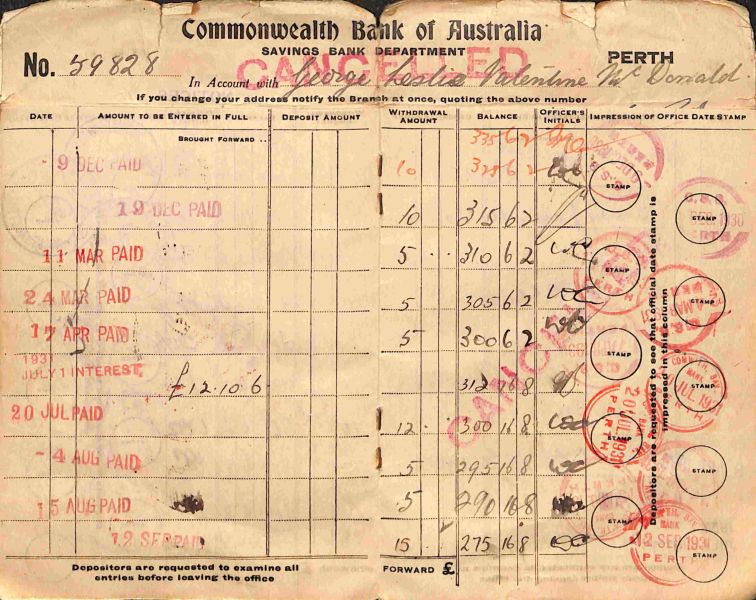 Commonwealth Bank of Australia
SAVINGS BANK DEPARTMENT
PERTH
No. 59828
CANCELLED
In Account with George Leslie Valentine McDonald
If you change your address notify the Branch at once, quoting the above number
DATE AMOUNT TO BE ENTERED IN FULL DEPOSIT AMOUNT WITHDRAWAL AMOUNT BALANCE OFFICER'S INITIALS IMPRESSION OF OFFICE DATE STAMP
BROUGHT FORWARD .. 335 6 2
- 9 DEC PAID 10 325 6 2
19 DEC PAID 10 315 6 2
11 MAR PAID 5 310 6 2
24 MAR PAID 5 305 6 2
17 APR PAID 5 300 6 2
1931
JULY 1 INTEREST. £12.10.6 312 16 8
20 JUL PAID 12 300 16 8
- 4 AUG PAID 5 295 16 8
15 AUG PAID 5 290 16 8
12 SEP PAID 15 275 16 8
STAMP
STAMP
STAMP
STAMP
STAMP
STAMP
STAMP
STAMP
STAMP
STAMP
Depositors are requested to see that official date stamp is
impressed in this column
20 JUL 1931
PERTH
JUL 1931
12 SEP 193
PERTH
Depositors are requested to examine all
entries before leaving the office
FORWARD £